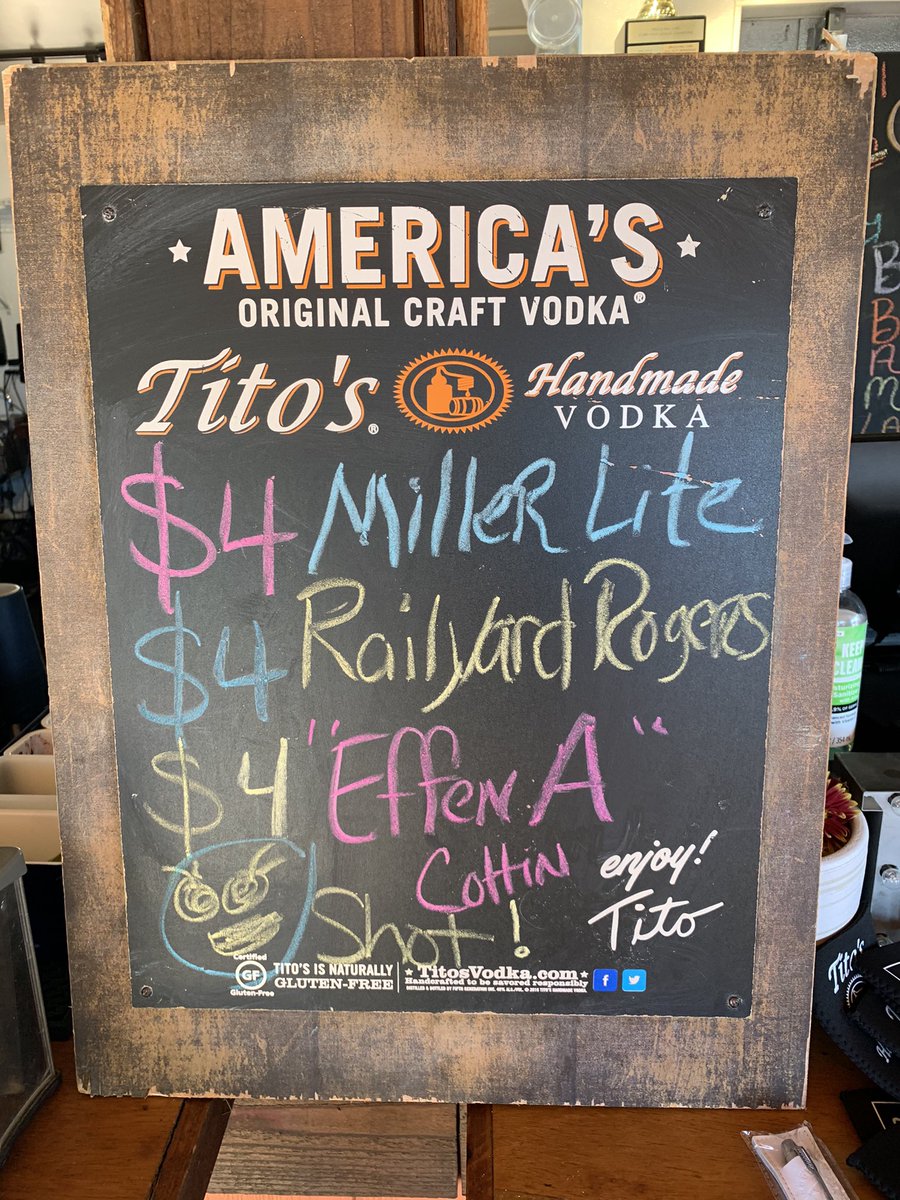 AMERICA'S
ORIGINAL CRAFT VODKA®
Tito's® Handmade
VODKA
$4 Miller Lite
$4 Railyard Rogers
$4 "Effen A"
Cottin
Shot!
enjoy!
Tito
Certified
GF
Gluten-Free
TITO'S IS NATURALLY
GLUTEN-FREE
TitosVodka.com
Handcrafted to be savored responsibly
KEEP
CLEAN
Tito's